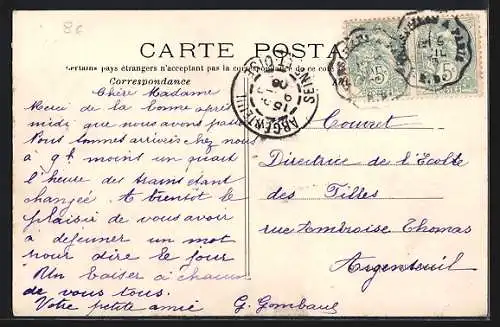 86
CARTE POSTA
Certains pays étrangers n'acceptent pas la correspondance de ce côté
Correspondance
Chère Madame
Merci de la bonne après
midi que nous avons passé
Nous sommes arrivés chez nous
à 9h moins un quart
l'heure des trains étant
changée. A bientôt le
plaisir de vous avoir
à dejeuner un mot
pour dire le jour
Un baiser à chacun
de vous tous.
Votre petite amie
G. Gombault
ARGENTEUIL
SEINE-ET-OISE
5
5
Couvret
Directrice de l'Ecole
des Filles
rue Ambroise Thomas
Argenteuil